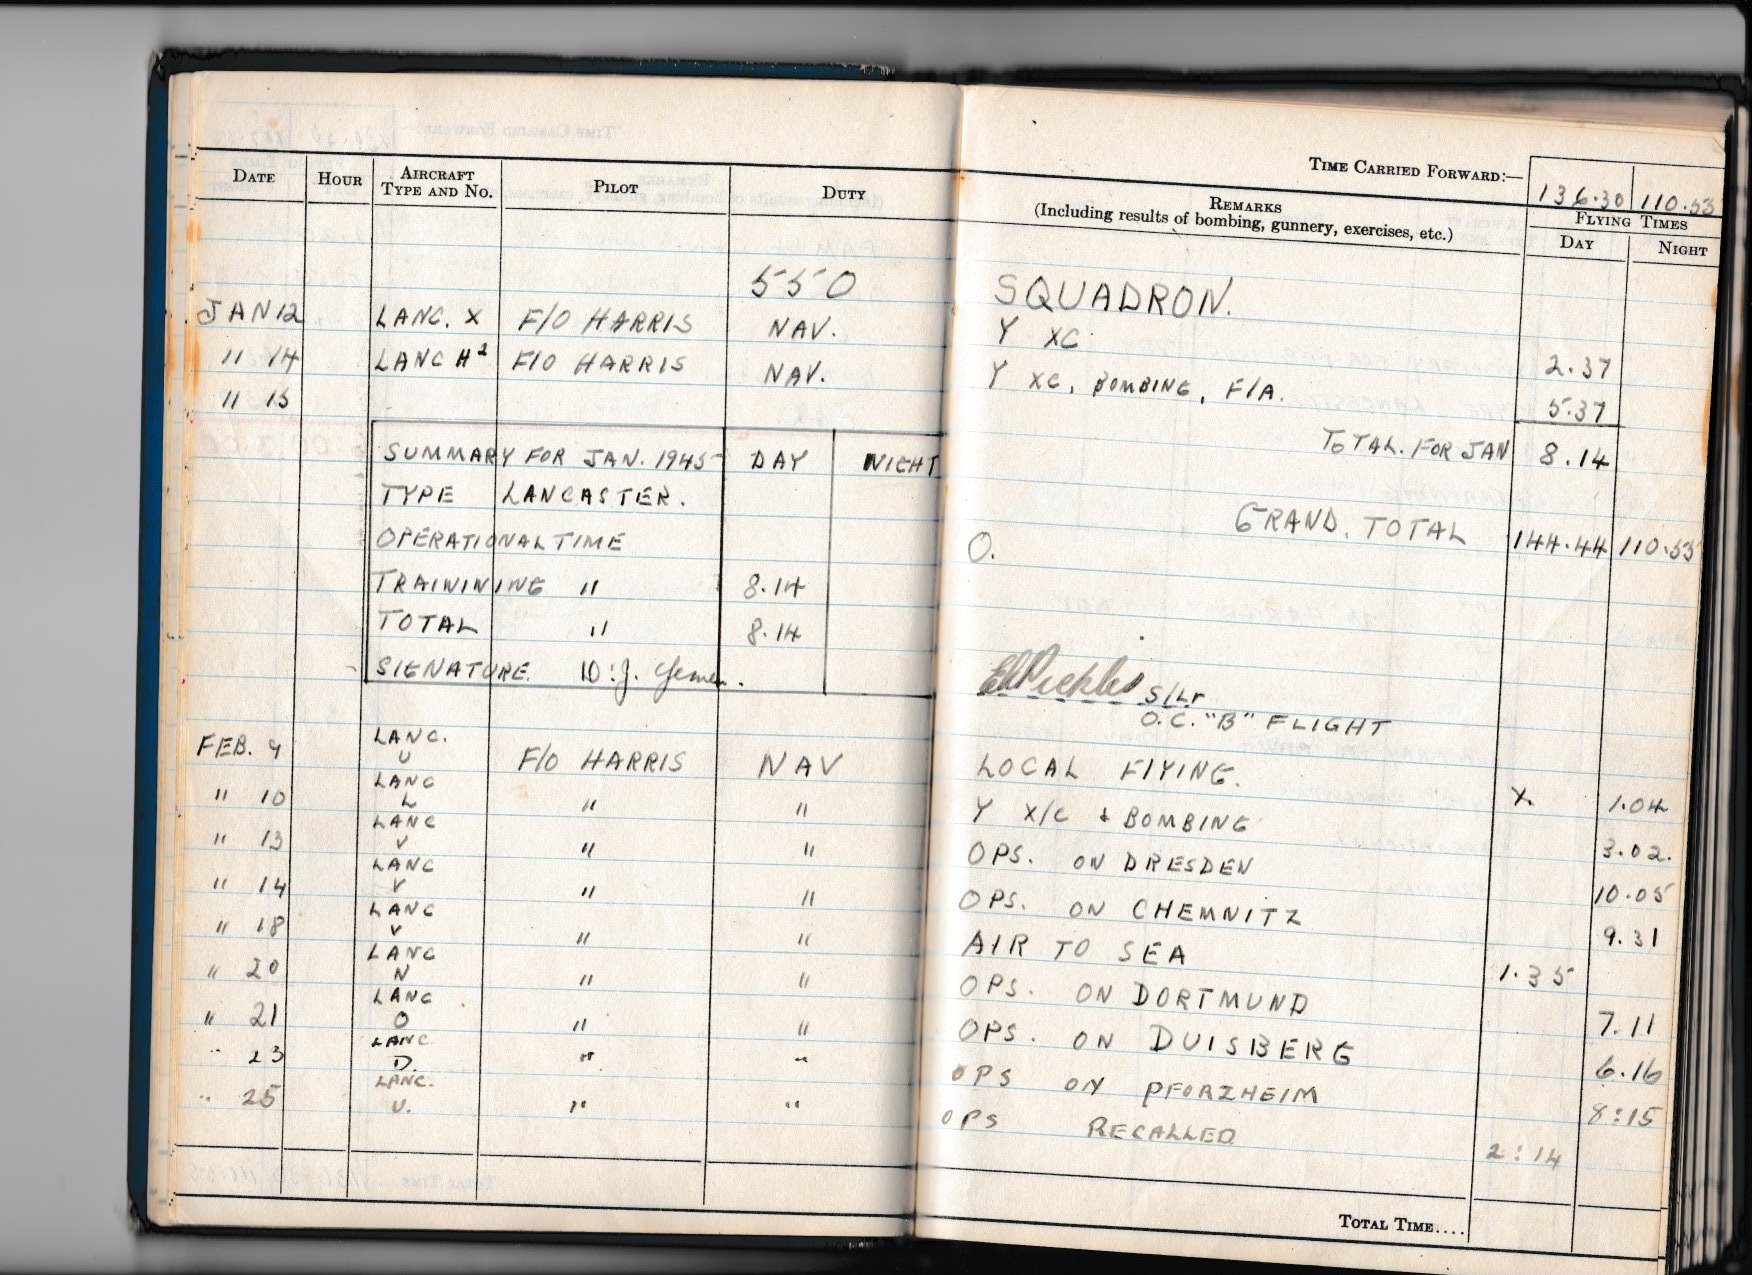 TIME CARRIED FORWARD:— 136.30 110.53
DATE HOUR AIRCRAFT TYPE AND No. PILOT DUTY REMARKS (Including results of bombing, gunnery, exercises, etc.) FLYING TIMES DAY NIGHT
550 SQUADRON.
JAN 12 LANC. X F/O HARRIS NAV. Y XC 2.37
" 14 LANC H² F/O HARRIS NAV. Y XC, BOMBING, F/A. 5.37
" 15
TOTAL. FOR JAN 8.14
SUMMARY FOR JAN. 1945 DAY NIGHT
TYPE LANCASTER.
GRAND. TOTAL 144.44 110.53
OPERATIONAL TIME O.
TRAININING " 8.14
TOTAL " 8.14
SIGNATURE. D.J.
EPickles S/Lr
O.C. "B" FLIGHT
FEB. 9 LANC. U F/O HARRIS NAV LOCAL FLYING. X. 1.04
" 10 LANC L " " Y X/C & BOMBING 3.02.
" 13 LANC V " " OPS. ON DRESDEN 10.05
" 14 LANC V " " OPS. ON CHEMNITZ 9.31
" 18 LANC V " " AIR TO SEA 1.35
" 20 LANC N " " OPS. ON DORTMUND 7.11
" 21 LANC O " " OPS. ON DUISBERG 6.16
" 23 LANC D. " " OPS ON PFORZHEIM 8:15
" 25 LANC. U. " " OPS RECALLED 2:14
TOTAL TIME....